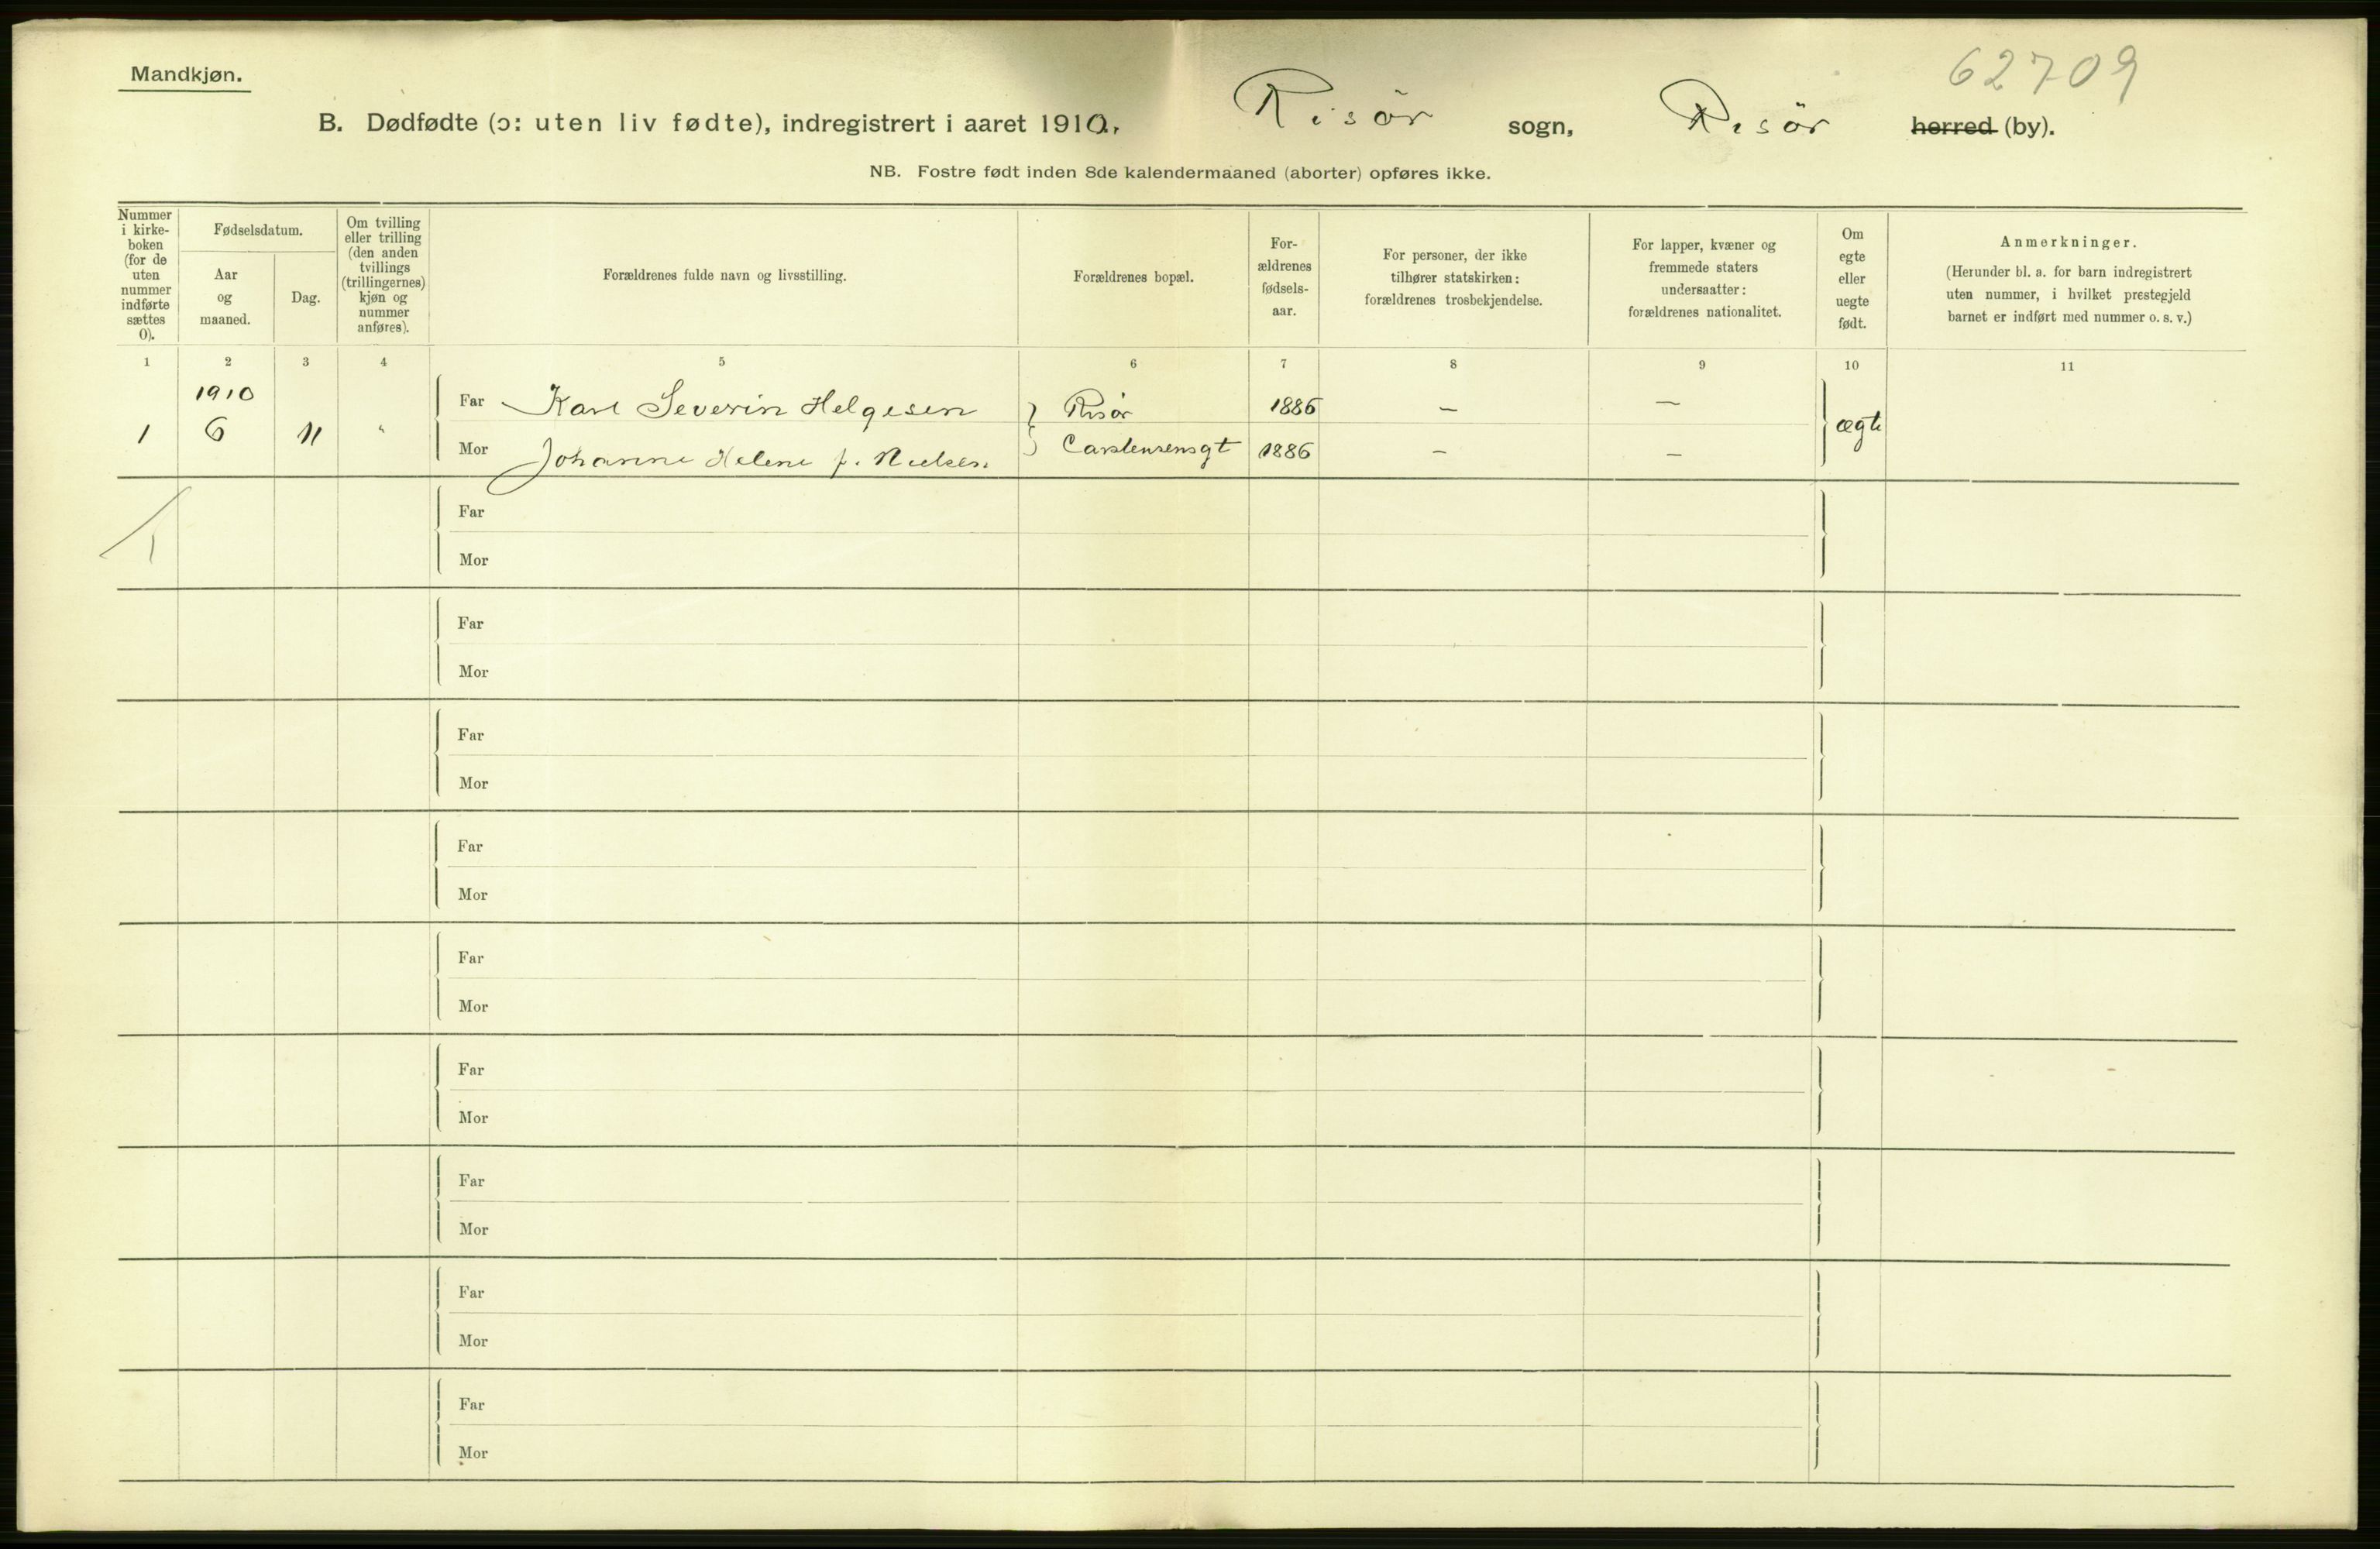 62709
Mandkjøn.
B. Dødfødte (ɔ: uten liv fødte), indregistrert i aaret 1910. Risör sogn, Risör herred (by).
NB. Fostre født inden 8de kalendermaaned (aborter) opføres ikke.
Nummer
i kirke-
boken
(for de
uten
nummer
indførte
sættes
0).
Fødselsdatum.
Aar
og
maaned.
Dag.
Om tvilling
eller trilling
(den anden
tvillings
(trillingernes)
kjøn og
nummer
anføres).
Forældrenes fulde navn og livsstilling.
Forældrenes bopæl.
For-
ældrenes
fødsels-
aar.
For personer, der ikke
tilhører statskirken:
forældrenes trosbekjendelse.
For lapper, kvæner og
fremmede staters
undersaatter:
forældrenes nationalitet.
Om
egte
eller
uegte
født.
Anmerkninger.
(Herunder bl. a. for barn indregistrert
uten nummer, i hvilket prestegjeld
barnet er indført med nummer o. s. v.)
1 2 3 4 5 6 7 8 9 10 11
1910
Far Karl Severin Helgesen Risør 1886 — —
1 6 11 " ægte
Mor Johanne Helene f. Nielsen Carstensensgt 1886 — —
Far
1
Mor
Far
Mor
Far
Mor
Far
Mor
Far
Mor
Far
Mor
Far
Mor
Far
Mor
Far
Mor